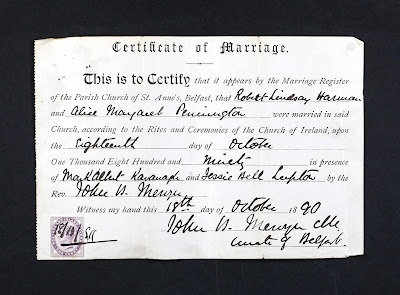 Certificate of Marriage.
This is to Certify that it appears by the Marriage Register
of the Parish Church of St. Anne's, Belfast, that Robert Lindsay Harman
and Alice Margaret Pennington were married in said
Church, according to the Rites and Ceremonies of the Church of Ireland, upon
the Eighteenth day of October
One Thousand Eight Hundred and Ninety in presence
of Mark Albert Kavanagh and Jessie Bell Lupton by the
Rev. John W.
Witness my hand this 18th day of October 1890
John W.
Curate of Belfast.